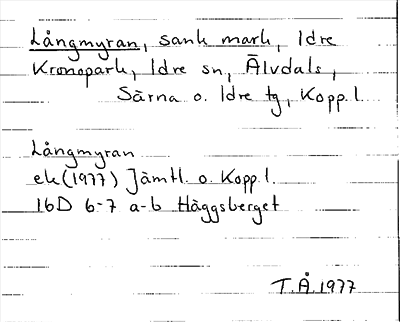 Långmyran, sank mark, Idre
Kronopark, Idre sn, Älvdals,
Särna o. Idre tg, Kopp. l.
Långmyran
ek (1977) Jämtl. o. Kopp. l.
16D 6-7 a-b Häggsberget
T.Å. 1977